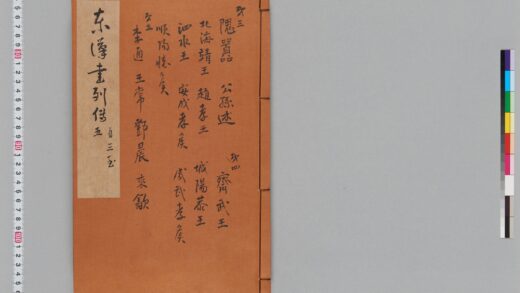 東漢書列傳 五 自三至
第三
隗囂 公孫述
第四
齊武王
北海靖王 趙孝王 城陽恭王
泗水王 安成孝侯 成武孝侯
順陽懷侯
第五
李通 王常 鄧晨 來歙